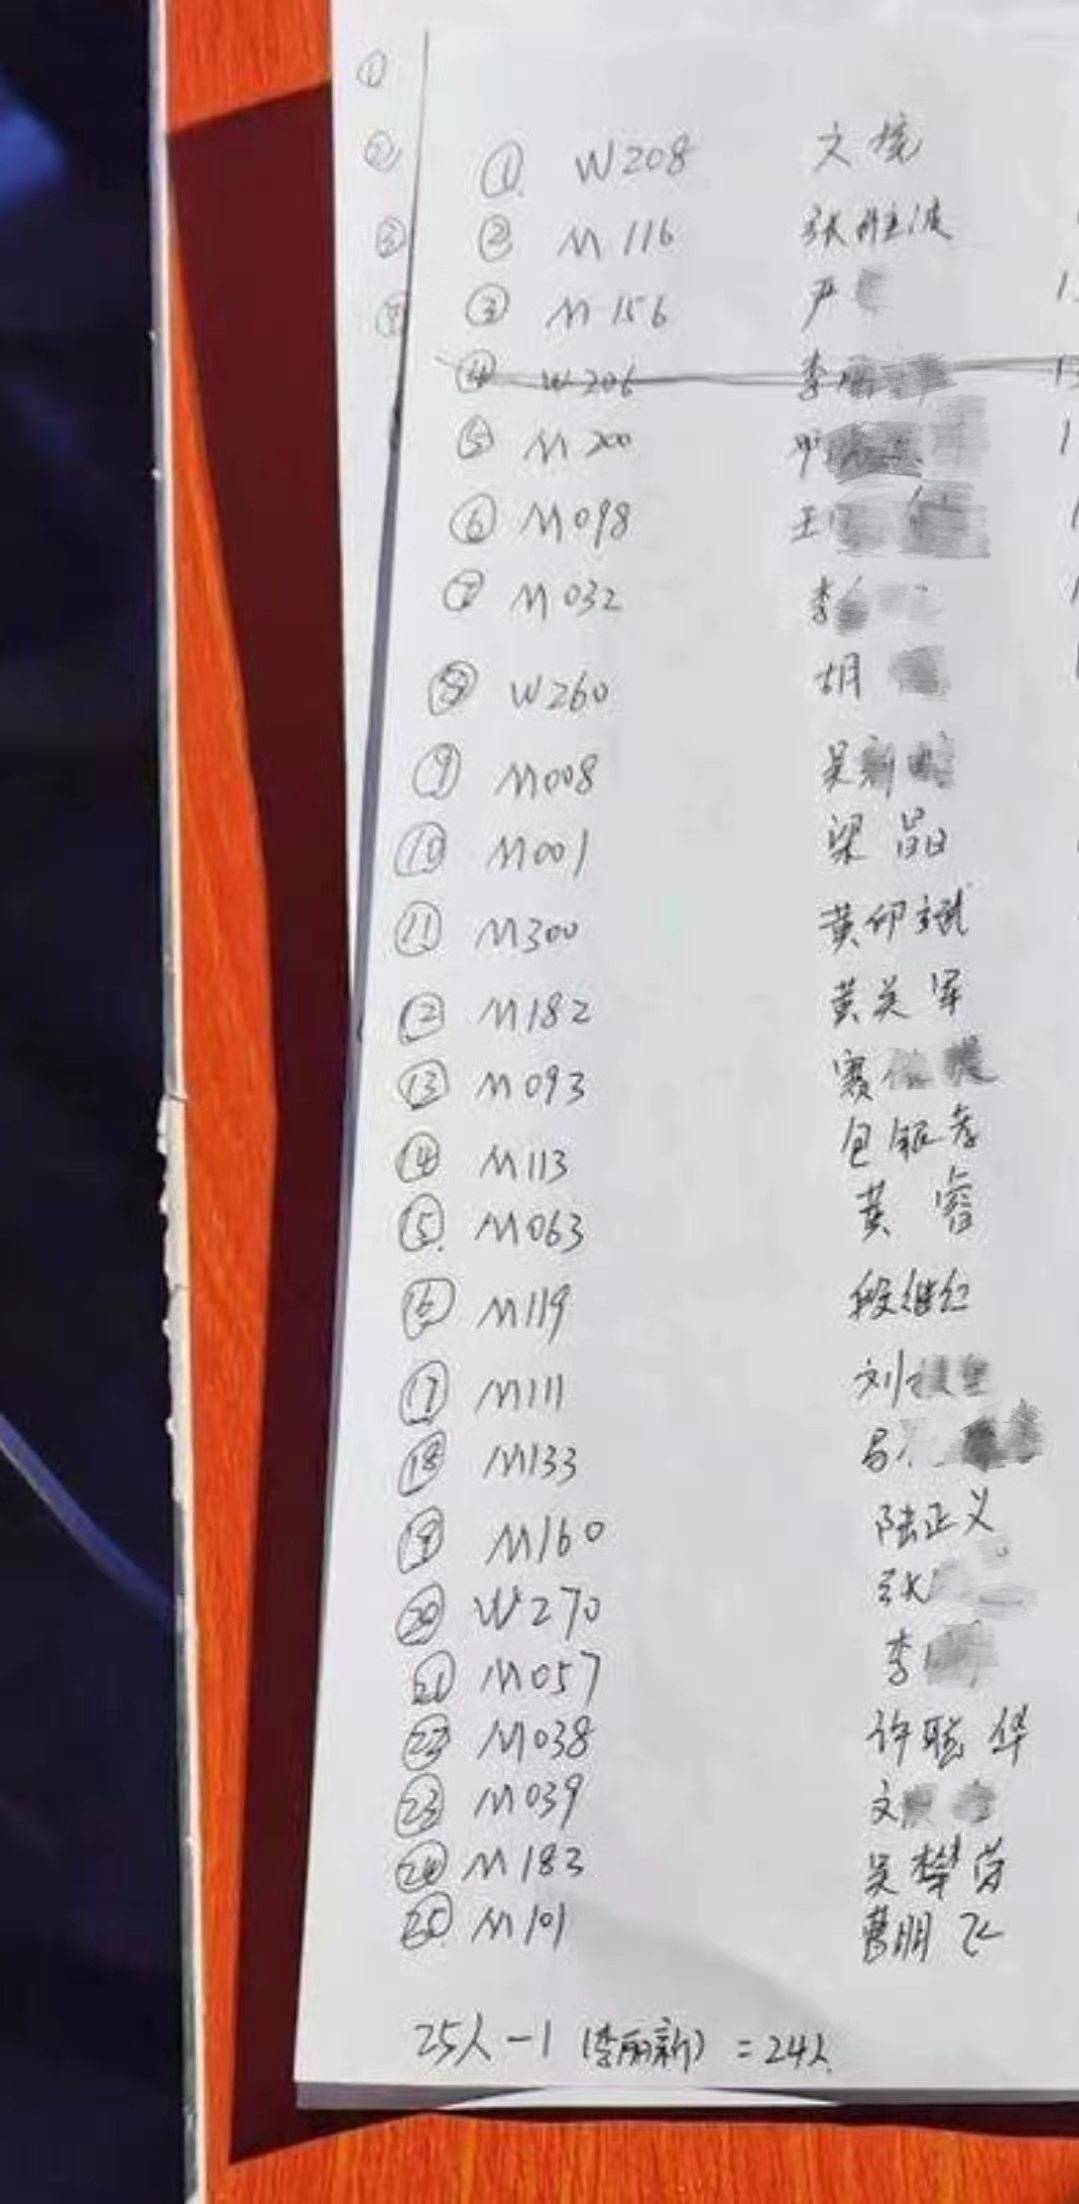 ①
②
③
① W208 文境
② M116 张胜波
③ M156 严
④ W206 李丽
⑤ M200 邓
⑥ M098 王
⑦ M032 李
⑧ W260 胡
⑨ M008 吴新明
⑩ M001 梁晶
⑪ M300 黄印斌
⑫ M182 黄关军
⑬ M093
⑭ M113 包银孝
⑮ M063 黄睿
⑯ M119 段继红
⑰ M111 刘
⑱ M133
⑲ M160 陆正义
⑳ W270 张
㉑ M057 李
㉒ M038 许聪华
㉓ M039 文
㉔ M183 吴攀荣
㉕ M101 曹朋飞
25人-1 (李丽新) =24人